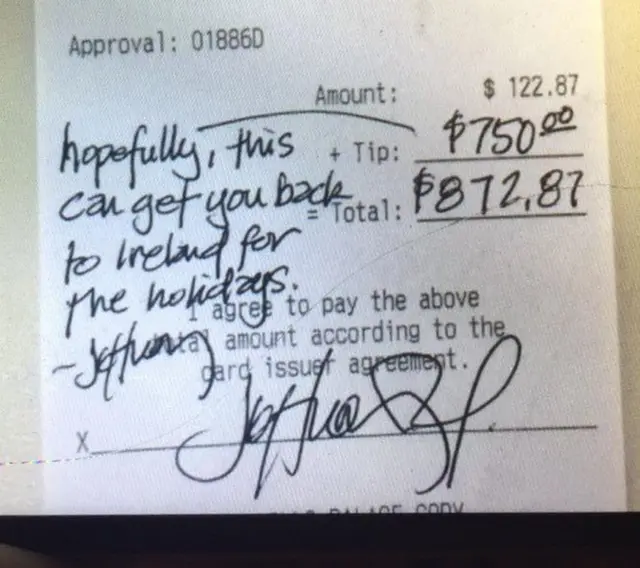 Approval: 01886D
Amount: $ 122.87
+ Tip: $750 00
= Total: $872.87
hopefully, this
can get you back
to Ireland for
the holidays.
I agree to pay the above
amount according to the
card issuer agreement.
X
COPY